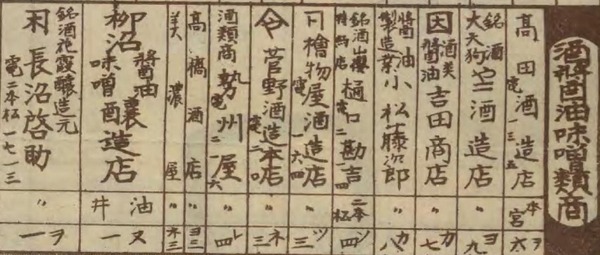 酒醤油味噌類商
髙田酒造店 電一三五 本宮 ヲ六
銘酒 大天狗 酒造店 〃 ヨ九
因 酒類 醤油 吉田商店 〃 カ七
醤油製造業 小松藤次郎 〃 カ八
銘酒山櫻 特約店 樋口勘吉 電四 二本松 ソ四
檜物屋酒造店 電一六四 〃 ツ三
菅野酒造本店 電二〇 〃 ネ三
酒類商 勢州屋 電二六 〃 レ四
高橋酒店 〃 ヨ三
美濃屋 〃 ネ三
柳沼醤油味噌醸造店 油井 ヌ一
銘酒 花霞醸造元 長沼啓助 電二本松一七一三 〃 ヲ一